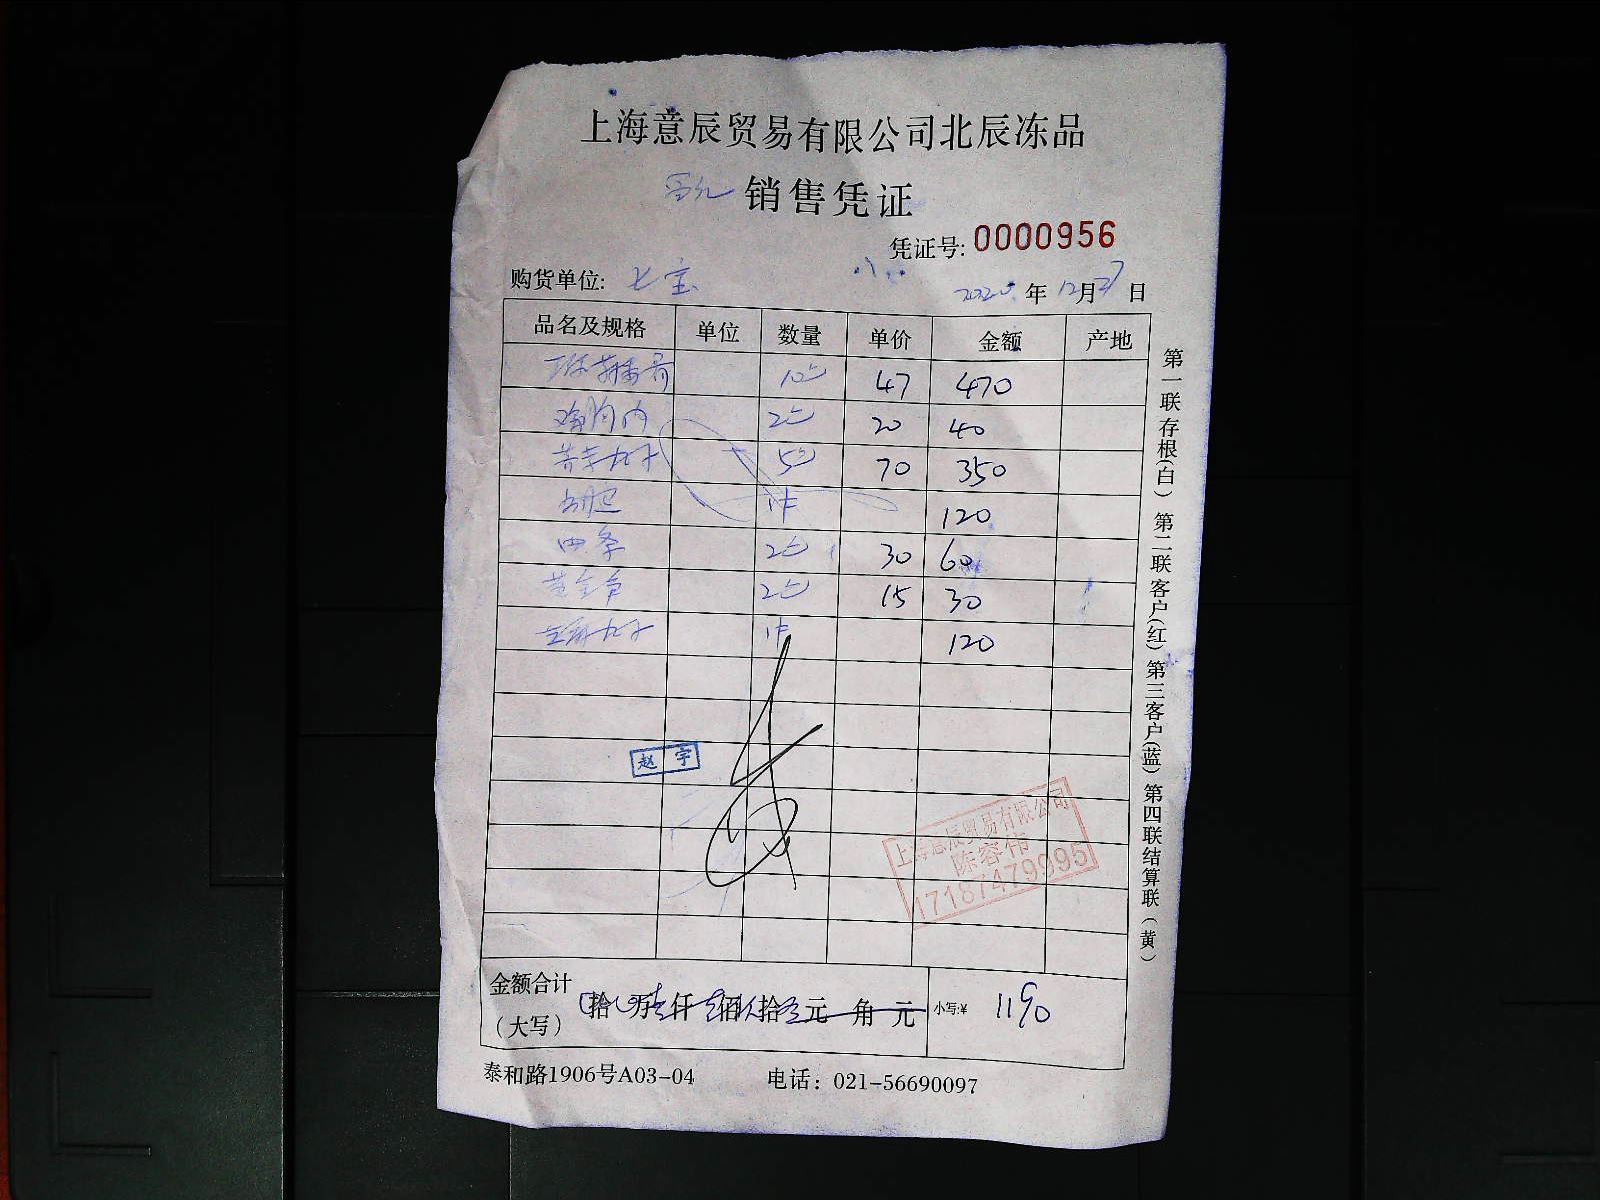 上海意辰贸易有限公司北辰冻品
销售凭证
凭证号: 0000956
购货单位: 七宝
年12月27日
品名及规格 单位 数量 单价 金额 产地
10 47 470
鸡胸肉 2 20 40
荠菜丸子 5 70 350
1件 120
2 30 60
2 15 30
丸子 1件 120
赵宇
上海意辰贸易有限公司
陈容伟
17187479995
金额合计
(大写) 拾 万 仟 佰 拾 元 角 元 小写:¥ 1190
泰和路1906号A03-04 电话: 021-56690097
第一联存根(白) 第二联客户(红) 第三客户(蓝) 第四联结算联(黄)